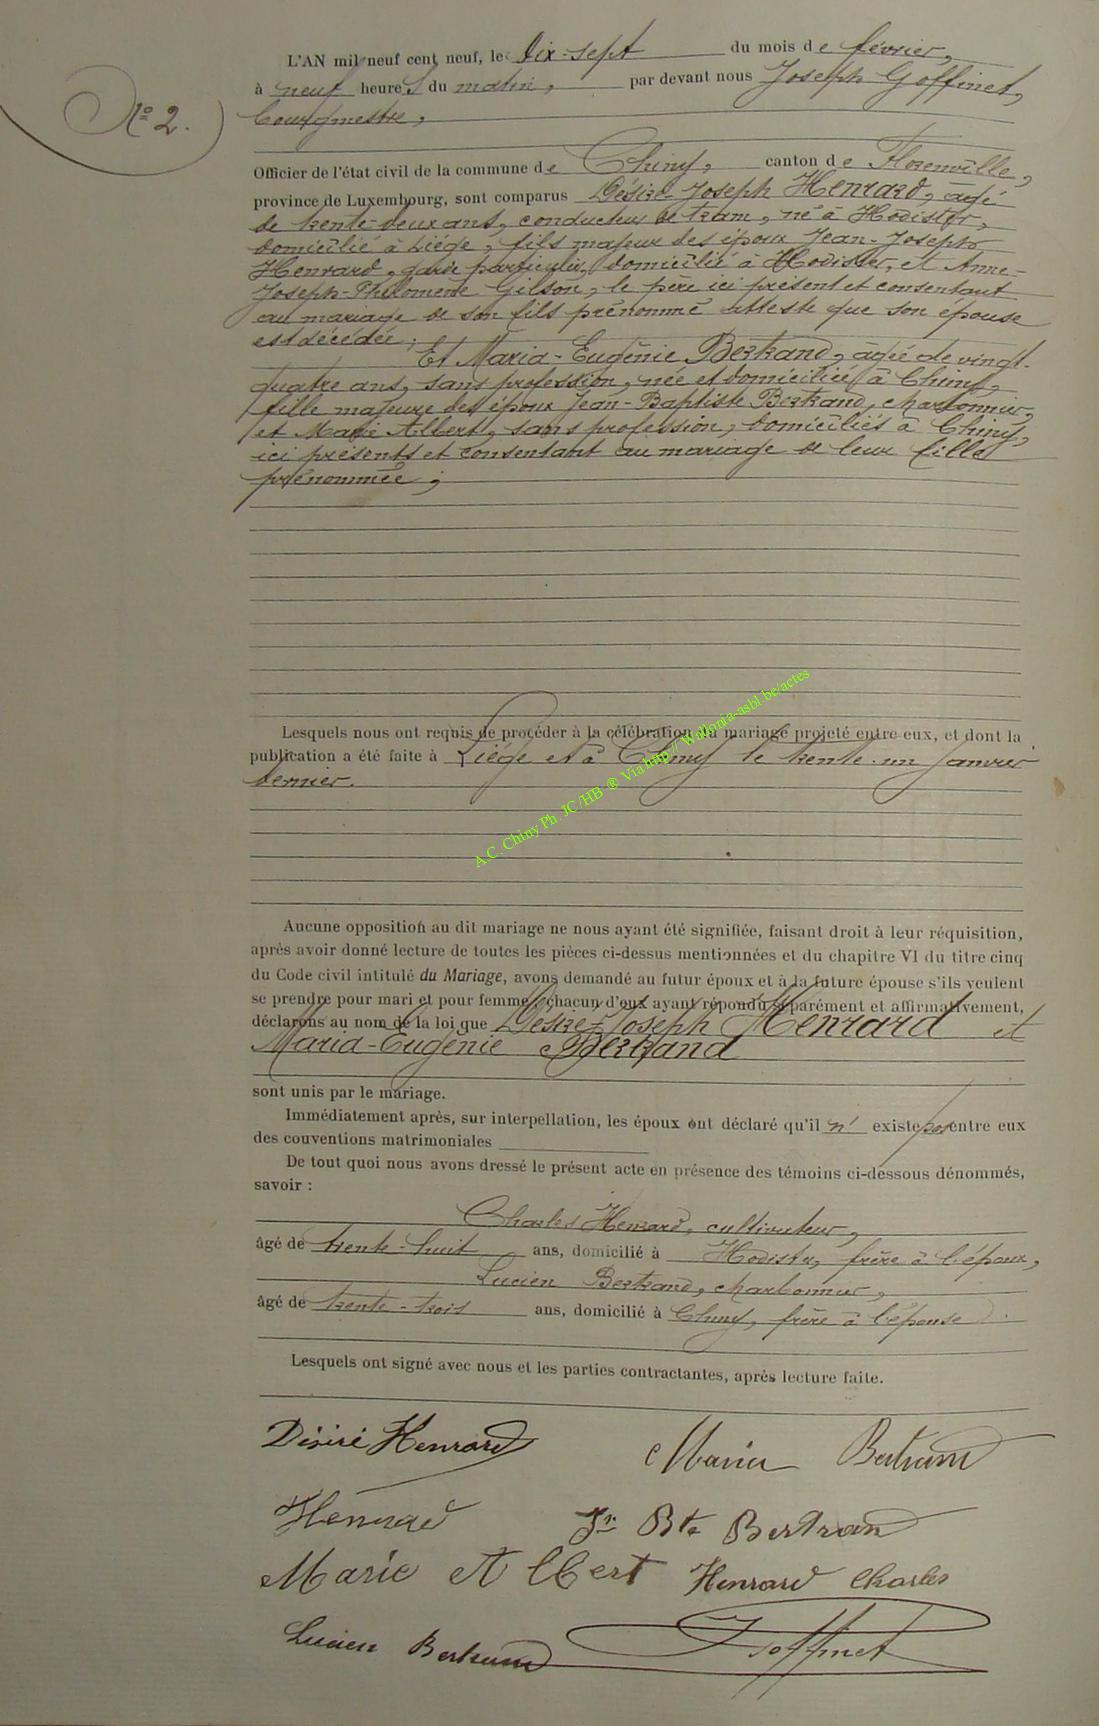 N° 2.
L'AN mil neuf cent neuf, le Dix-sept du mois de février,
à neuf heures du matin, par devant nous Joseph Goffinet,
bourgmestre,
Officier de l'état civil de la commune de Chiny, canton de Florenville,
province de Luxembourg, sont comparus Désiré-Joseph Henrard, agé
de trente-deux ans, conducteur de tram, né à Hodister,
domicilié à Liége, fils majeur des époux Jean-Joseph
Henrard, garde particulier, domicilié à Hodister, et Anne-
Joseph-Philomène Gilson, le père ici présent et consentant
au mariage de son fils prénommé atteste que son épouse
est décédée;
Et Maria-Eugénie Bertrand, agée de vingt-
quatre ans, sans profession, née et domiciliée à Chiny,
fille majeure des époux Jean-Baptiste Bertrand, charbonnier,
et Marie Albert, sans profession, domiciliés à Chiny,
ici présents et consentant au mariage de leur fille
prénommée;
Lesquels nous ont requis de procéder à la célébration du mariage projeté entre eux, et dont la
publication a été faite à Liége et à Chiny le trente-un janvier
dernier.
A.C. Chiny Ph. JC/HB ® Via http:// Wallonia-asbl.be/actes
Aucune opposition au dit mariage ne nous ayant été signifiée, faisant droit à leur réquisition,
après avoir donné lecture de toutes les pièces ci-dessus mentionnées et du chapitre VI du titre cinq
du Code civil intitulé du Mariage, avons demandé au futur époux et à la future épouse s'ils veulent
se prendre pour mari et pour femme, chacun d'eux ayant répondu séparément et affirmativement,
déclarons au nom de la loi que Désiré-Joseph Henrard et
Maria-Eugénie Bertrand
sont unis par le mariage.
Immédiatement après, sur interpellation, les époux ont déclaré qu'il n' existe pas entre eux
des conventions matrimoniales
De tout quoi nous avons dressé le présent acte en présence des témoins ci-dessous dénommés,
savoir :
Charles Henrard, cultivateur,
âgé de trente-huit ans, domicilié à Hodister, frère à l'époux,
Lucien Bertrand, charbonnier,
âgé de trente-trois ans, domicilié à Chiny, frère à l'épouse.
Lesquels ont signé avec nous et les parties contractantes, après lecture faite.
Désiré Henrard Maria Bertrand
Henrard Jn Bte Bertrand
Marie Albert Henrard Charles
Lucien Bertrand J Goffinet